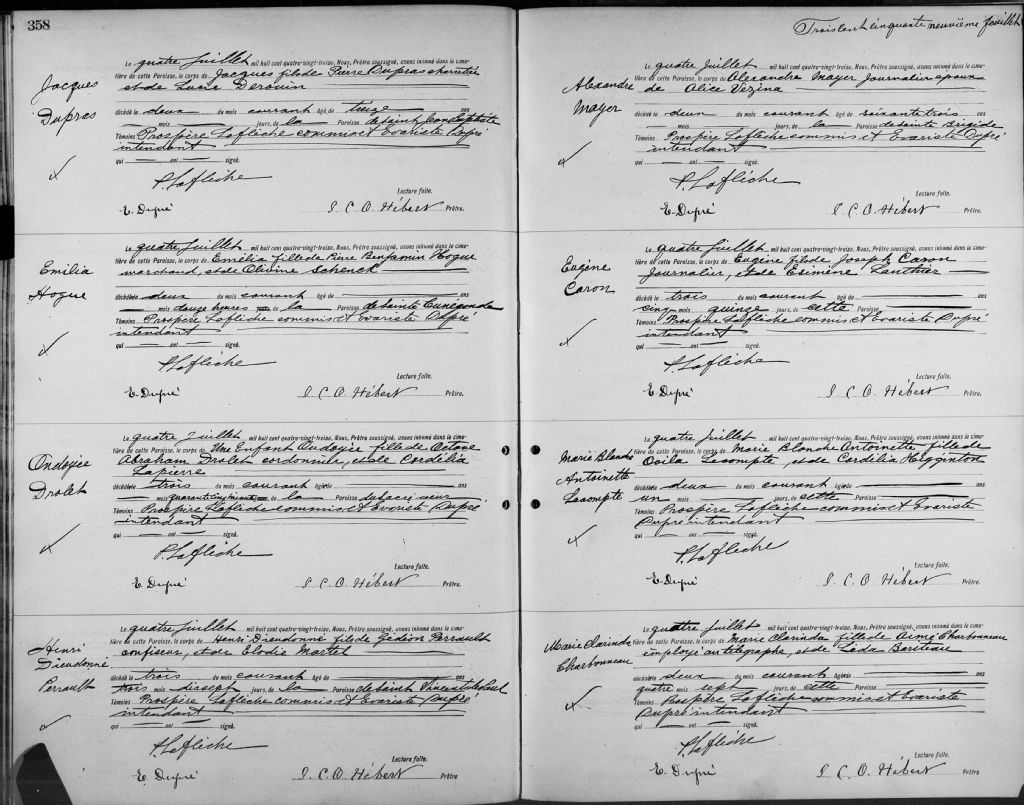 358
Jacques
Dupras
Le quatre juillet mil huit cent quatre-vingt-treize. Nous, Prêtre soussigné, avons inhumé dans le cime-
tière de cette Paroisse, le corps de Jacques fils de Pierre Dupras charretier
et de Lucie Derouin
décédé le deux du mois courant âgé de treize ans
mois jours, de la Paroisse de Saint Jean Baptiste
Témoins Prospère Laflèche commis et Evariste Dupré
intendant
qui ont signé.
P. Laflèche
Lecture faite.
E. Dupré J. C. O. Hébert Prêtre.
Emilia
Hogue
Le quatre juillet mil huit cent quatre-vingt-treize. Nous, Prêtre soussigné, avons inhumé dans le cime-
tière de cette Paroisse, le corps de Emélia fille de Pierre Benjamin Hogue
marchand, et de Olivine Schenck
décédé le deux du mois courant âgé de ans
mois douze heures de la Paroisse de Sainte Cunégonde
Témoins Prospère Laflèche commis et Evariste Dupré
intendant
qui ont signé.
P. Laflèche
Lecture faite.
E. Dupré J. C. O. Hébert Prêtre.
Ondoyée
Drolet
Le quatre Juillet mil huit cent quatre-vingt-treize. Nous, Prêtre soussigné, avons inhumé dans le cime-
tière de cette Paroisse, le corps de Une Enfant Ondoyée fille de Octave
Abraham Drolet cordonnier, et de Cordélia
Lapierre
décédé le trois du mois courant âgé de ans
mois quarante cinq minutes de la Paroisse du Sacré cœur
Témoins Prospère Laflèche commis et Evariste Dupré
intendant
qui ont signé.
P. Laflèche
Lecture faite.
E. Dupré J. C. O. Hébert Prêtre.
Henri
Dieudonné
Perrault
Le quatre juillet mil huit cent quatre-vingt-treize. Nous, Prêtre soussigné, avons inhumé dans le cime-
tière de cette Paroisse, le corps de Henri Dieudonné fils de Gédéon Perrault
confiseur, et de Elodie Martel
décédé le trois du mois courant âgé de ans
trois mois dissept jours, de la Paroisse de Saint Vincent de Paul
Témoins Prospère Laflèche commis et Evariste Dupré
intendant
qui ont signé.
P. Laflèche
Lecture faite.
E. Dupré J. C. O. Hébert Prêtre
Trois cent cinquante neuvième feuillet
Alexandre
Mayer
Le quatre Juillet mil huit cent quatre-vingt-treize. Nous, Prêtre soussigné, avons inhumé dans le cime-
tière de cette Paroisse, le corps de Alexandre Mayer Journalier époux
de Alice Vezina
décédé le deux du mois courant âgé de soixante trois ans
mois jours, de la Paroisse de Sainte Brigide
Témoins Prospère Laflèche commis et Evariste Dupré
intendant
qui ont signé.
P. Laflèche
Lecture faite.
E. Dupré J. C. O. Hébert Prêtre.
Eugène
Caron
Le quatre juillet mil huit cent quatre-vingt-treize. Nous, Prêtre soussigné, avons inhumé dans le cime-
tière de cette Paroisse, le corps de Eugène fils de Joseph Caron
Journalier, et de Lanthier
décédé le trois du mois courant âgé de ans
cinq mois quinze jours, de cette Paroisse
Témoins Prospère Laflèche commis et Evariste Dupré
intendant
qui ont signé.
P. Laflèche
Lecture faite.
E. Dupré J. C. O. Hébert Prêtre.
Marie Blanche
Antoinette
Lecompte
Le quatre Juillet mil huit cent quatre-vingt-treize. Nous, Prêtre soussigné, avons inhumé dans le cime-
tière de cette Paroisse, le corps de Marie Blanche Antoinette fille de
Ovila Lecompte, et de Cordélia Higginton
décédé le deux du mois courant âgé de ans
un mois jours, de cette Paroisse
Témoins Prospère Laflèche commis et Evariste
Dupré intendant
qui ont signé.
P. Laflèche
Lecture faite.
E. Dupré J. C. O. Hébert Prêtre.
Marie Clarinda
Charbonneau
Le quatre juillet mil huit cent quatre-vingt-treize. Nous, Prêtre soussigné, avons inhumé dans le cime-
tière de cette Paroisse, le corps de Marie Clarinda fille de Aimé Charbonneau
employé au télégraphe, et de Léda Bariteau
décédé le deux du mois courant âgé de ans
quatre mois sept jours, de cette Paroisse
Témoins Prospère Laflèche commis et Evariste
Dupré intendant
qui ont signé.
P. Laflèche
Lecture faite.
E. Dupré J. C. O. Hébert Prêtre